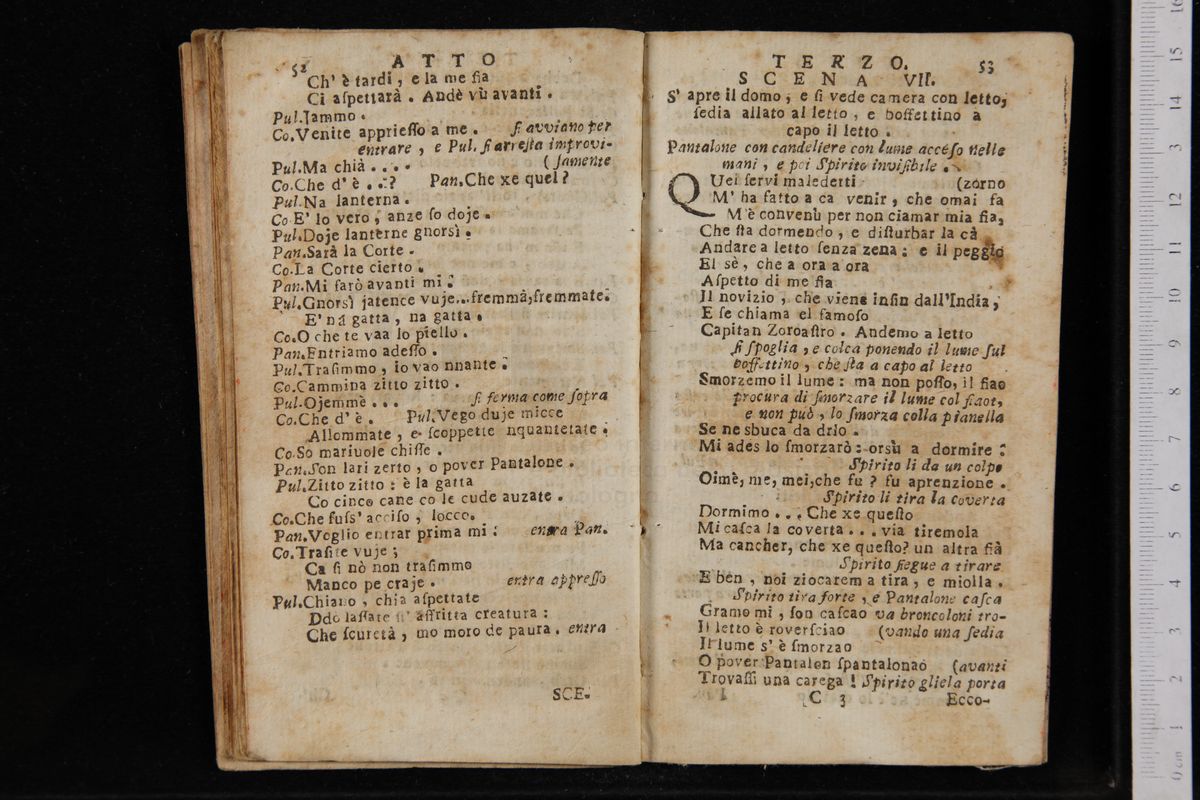 52 ATTO
Ch' è tardi, e la me ſia
Ci aſpettarà. Andè vù avanti.
Pul. Jammo.
Co. Venite apprieſſo a me. ſi avviano per
entrare, e Pul. ſi arreſta improvi-
Pul. Ma chià .... (ſamente
Co. Che d' è ...? Pan. Che xe quel?
Pul. Na lanterna.
Co. E' lo vero, anze ſo doje.
Pul. Doje lanterne gnorsì.
Pan. Sarà la Corte.
Co. La Corte cierto.
Pan. Mi farò avanti mi.
Pul. Gnorsì jatence vuje... fremmà, fremmate.
E' na gatta, na gatta.
Co. O che te vaa lo piello.
Pan. Entriamo adeſſo.
Pul. Traſimmo, io vao nnante.
Co. Cammina zitto zitto.
Pul. Ojemmè ... ſi ferma come ſopra
Co. Che d' è. Pul. Vego duje micce
Allommate, e ſcoppette nquantetate.
Co. So mariuole chiſſe.
Pan. Son lari zerto, o pover Pantalone.
Pul. Zitto zitto: è la gatta
Co cinco cane co le cude auzate.
Co. Che fuſs' acciſo, locco.
Pan. Voglio entrar prima mi: entra Pan.
Co. Traſite vuje;
Ca ſi nò non traſimmo
Manco pe craje. entra appreſſo
Pul. Chiano, chia aſpettate
Ddo laſſate ſt' affritta creatura:
Che ſcuretà, mo moro de paura. entra
SCE-
TERZO. 53
SCENA VII.
S' apre il domo, e ſi vede camera con letto,
ſedia allato al letto, e boffettino a
capo il letto.
Pantalone con candeliere con lume acceſo nelle
mani, e poi Spirito inviſibile.
QUei ſervi maledetti (zorno
M' ha fatto a ca venir, che omai fa
M'è convenù per non ciamar mia fia,
Che ſta dormendo, e diſturbar la cà
Andare a letto ſenza zena: e il peggio
El sè, che a ora a ora
Aſpetto di me fia
Il novizio, che viene inſin dall'India,
E ſe chiama el famoſo
Capitan Zoroaſtro. Andemo a letto
ſi ſpoglia, e colca ponendo il lume ſul
boffettino, che ſta a capo al letto
Smorzemo il lume: ma non poſſo, il fiao
procura di ſmorzare il lume col fiaot,
e non può, lo ſmorza colla pianella
Se ne sbuca da drio.
Mi ades lo ſmorzarò: orsù a dormire:
Spirito li da un colpo
Oimè, me, mei, che fu? fu aprenzione.
Spirito li tira la coverta
Dormimo ... Che xe queſto
Mi caſca la coverta ... via tiremola
Ma cancher, che xe queſto? un altra fià
Spirito ſiegue a tirare
E ben, noi ziocarem a tira, e miolla.
Spirito tira forte, e Pantalone caſca
Gramo mi, ſon caſcao va broncoloni tro-
Il letto è roverſciao (vando una ſedia
Il lume s' è ſmorzao
O pover Pantalon ſpantalonao (avanti
Trovaſſi una carega! Spirito gliela porta
C 3 Ecco-